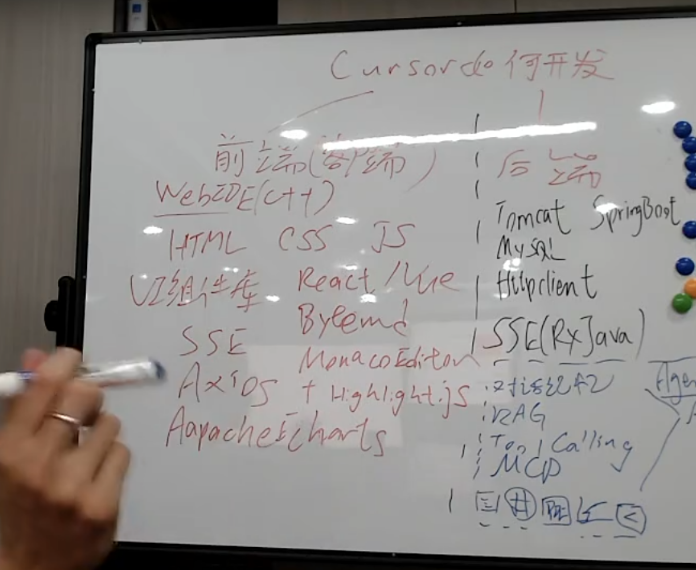 Cursor如何开发
前端(客户端)
WebIDE(C++)
HTML CSS JS
UI组件库 React/Vue
Bytemd
SSE
MonacoEditor
Axios + Highlight.js
AapacheEcharts
后端
Tomcat SpringBoot
MySQL
Httpclient
SSE(RxJava)
RAG
Tool Calling
MCP